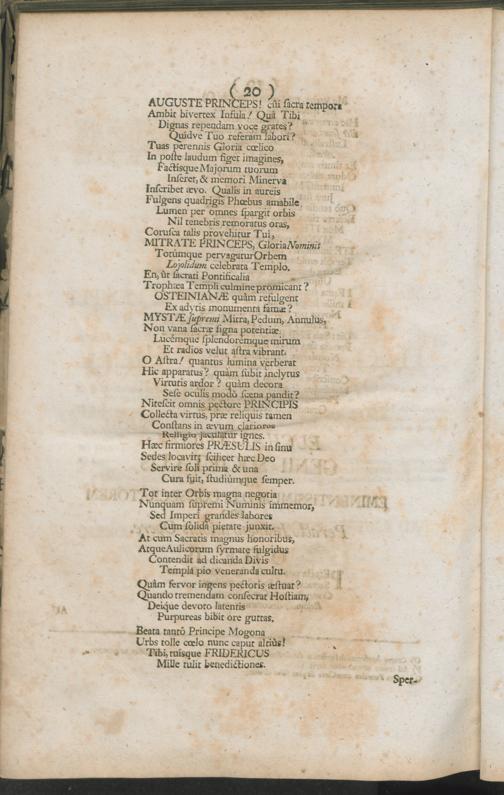 ( 20 )
AUGUSTE PRINCEPS! cui sacra tempora
Ambit bivertex Insula! Quâ Tibi
Dignas rependam voce grates?
Quidve Tuo referam labori?
Tuas perennis Gloria cœlico
In poste laudum figet imagines,
Factisque Majorum tuorum
Inseret, & memori Minerva
Inscribet ævo. Qualis in aureis
Fulgens quadrigis Phœbus amabile
Lumen per omnes spargit orbis
Nil tenebris remoratus oras,
Corusca talis provehitur Tui,
MITRATE PRINCEPS, Gloria Nominis
Totúmque pervagatur Orbem
Lojolidum celebrata Templo.
En, ùt sacrati Pontificalia
Trophæa Templi culmine promicant?
OSTEINIANÆ quàm refulgent
Ex adytis monumenta famæ?
MYSTÆ supremi Mitra, Pedum, Annulus,
Non vana sacræ signa potentiæ
Lucémque splendorémque mirum
Et radios velut astra vibrant.
O Astra! quantus lumina verberat
Hic apparatus? quàm subit inclytus
Virtutis ardor? quàm decora
Sese oculis modò scena pandit?
Nitescit omnis pectore PRINCIPIS
Collecta virtus, præ reliquis tamen
Constans in ævum clariores
Religio jaculatur ignes.
Hæc firmiores PRÆSULIS in sinu
Sedes locavit; scilicet hæc Deo
Servire soli prima & una
Cura fuit, studiúmque semper.
Tot inter Orbis magna negotia
Nunquam supremi Numinis immemor,
Sed Imperî grandes labores
Cum solidâ pietate junxit.
At cum Sacratis magnus honoribus,
Atque Aulicorum syrmate fulgidus
Contendit ad dicanda Divis
Templa pio veneranda cultu.
Quàm fervor ingens pectoris æstuat?
Quando tremendam consecrat Hostiam,
Deíque devoto latentis
Purpureas bibit ore guttas.
Beata tantô Principe Mogona
Urbs tolle cœlo nunc caput altiùs!
Tibi, tuisque FRIDERICUS
Mille tulit benedictiones.
Sper-